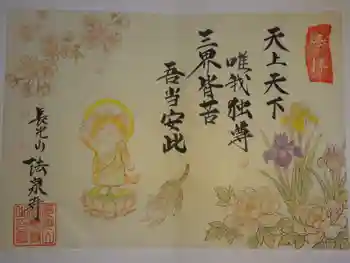 奉拝
天上天下
唯我独尊
三界皆苦
吾当安此
長光山 陸泉寺